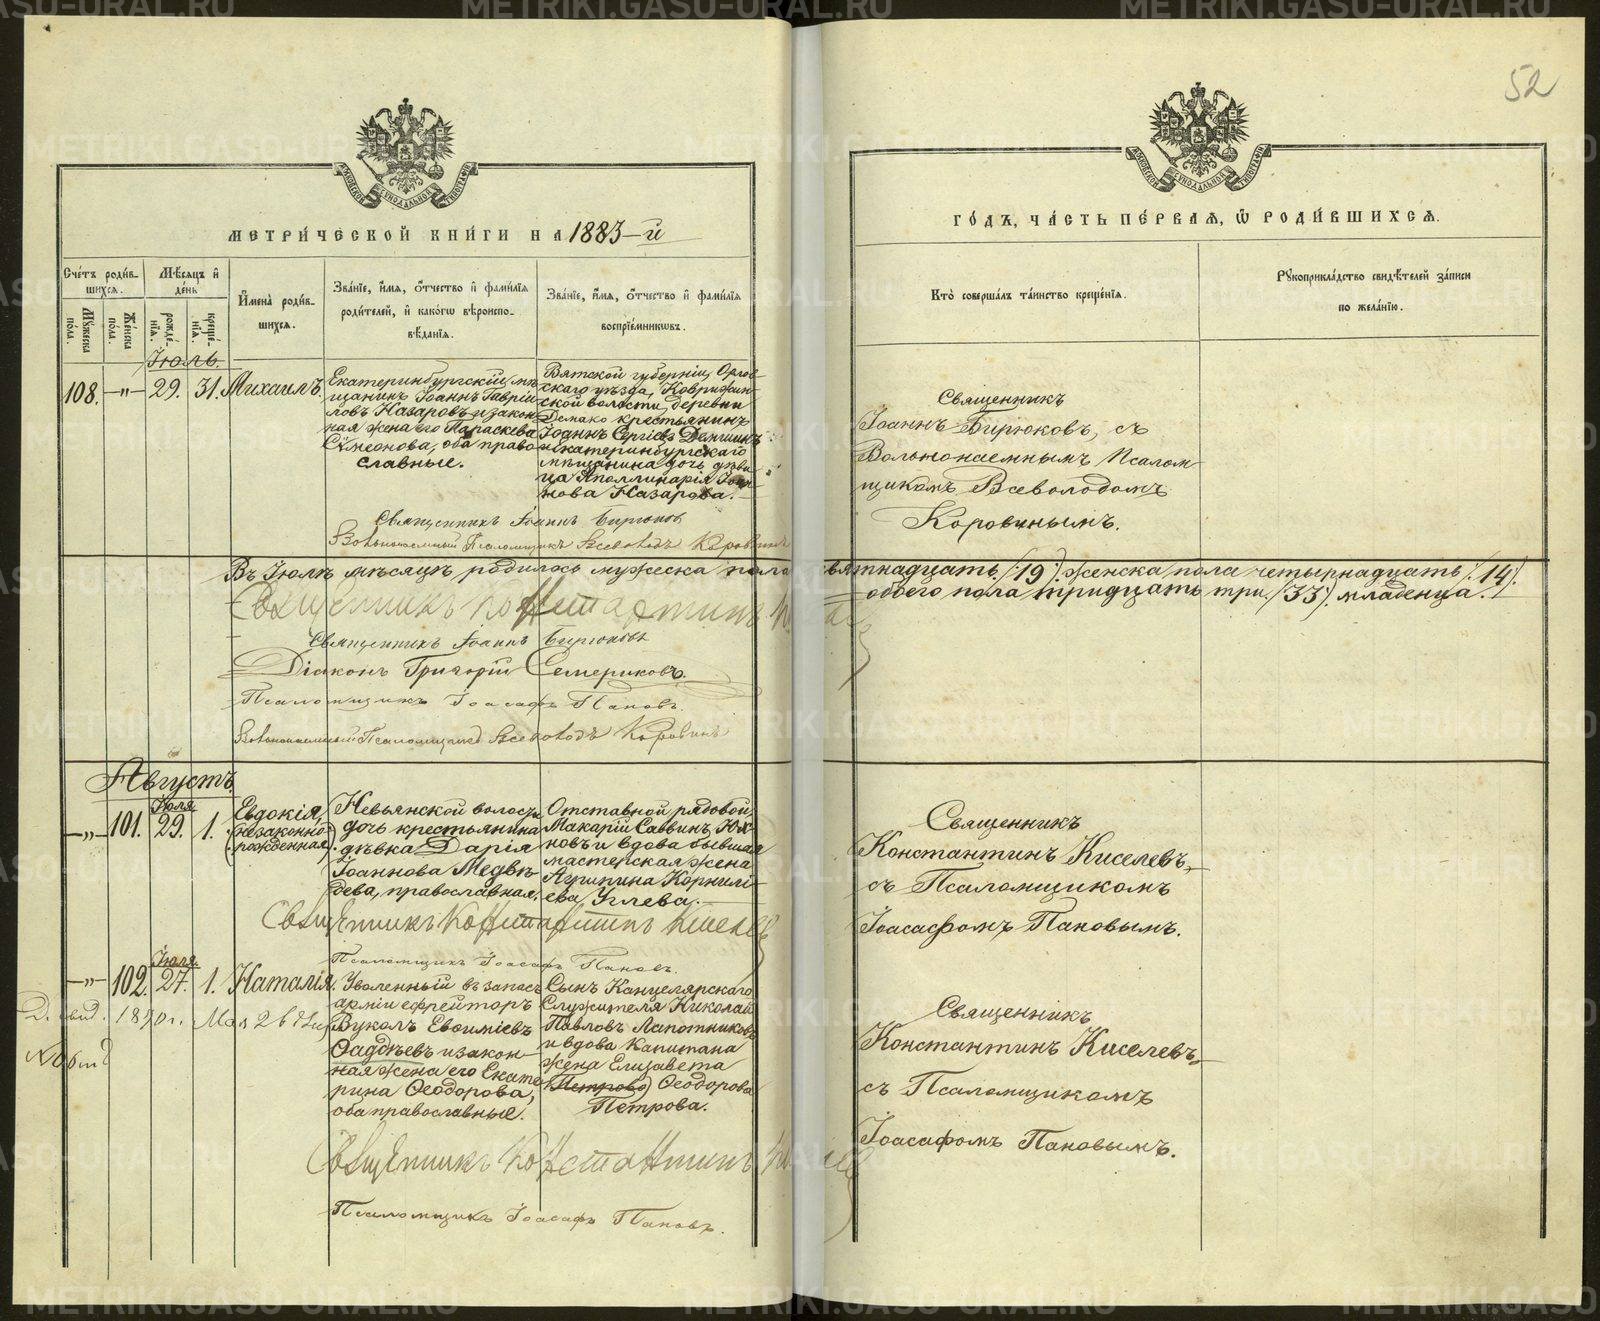 52
МЕТРИ́ЧЕСКОЙ КНИ́ГИ НА 1883-й
ГО́ДЪ, ЧА́СТЬ ПЕ́РВАЯ, Ѡ РОДИ́ВШИХСЯ.
Сче́тъ роди́вшихся.
Мѣ́сяцъ и де́нь
Имена̀ роди́вшихся.
Зва́нїе, и́мя, о́тчество и фами́лїя родителей, и како́гѡ вѣроисповѣ́данїя.
Зва́нїе, и́мя, о́тчество и фами́лїя воспрїе́мникѡвъ.
Кто̀ соверша́лъ та́инство креще́нїя.
Рукоприкла́дство свидѣ́телей за́писи по жела́нїю.
Мужеска по́ла.
Же́нска по́ла.
рожде́нїя.
креще́нїя.
Іюль.
108. -„- 29. 31. Михаилъ
Екатеринбургскій мѣ-
щанинъ Іоаннъ Гаврии-
ловъ Назаровъ и закон-
ная жена его Параскева
Сѵмеонова, оба право-
славные.
Вятской губерніи, Орлов-
скаго уѣзда,
ской волости, деревни
крестьянинъ
Іоаннъ Сергіевъ
и Екатеринбургскаго
мѣщанина дочь дѣви-
ца Аполлинарія Іоан-
нова Назарова.
Священникъ
Іоаннъ Бирюковъ, съ
Вольнонаемнымъ Псалом-
щикомъ Всеволодомъ
Коровинымъ.
Священникъ Іоаннъ Бирюков
Вольнонаемный Псаломщикъ Всеволодъ Коровинъ
Въ Іюлѣ мѣсяцѣ родилось мужеска пола девятнадцать /:19:/, женска пола четырнадцать /:14:/,
обоего пола тридцать три /:33:/ младенца.
Священникъ Константинъ
Священникъ Іоаннъ Бирюковъ
Діаконъ Григорій Семериковъ.
Псаломщикъ Іоасафъ Пановъ.
Вольнонаемный Псаломщикъ Всеволодъ Коровинъ
Августъ
Іюля
-„- 101. 29. 1. Евдокія,
(незаконно-
рожденная).
Невьянской волости
дочь крестьянина
дѣвка Дарія
Іоаннова Медвѣ-
дева, православная.
Отставной рядовой
Макарій Саввинъ
новъ и вдова бывшая
мастерская жена
Агрипина Корнилі-
ева Углева.
Священникъ
Константинъ Киселевъ,
съ Псаломщикомъ
Іоасафомъ Пановымъ.
Священникъ Константинъ Киселев
Псаломщикъ Іоасафъ Пановъ.
Іюля
-„- 102. 27. 1. Наталія
1890 г. Мая 26 дня
Уволенный въ запасъ
арміи ефрейторъ
Вуколъ Евѳиміевъ
Ѳаддѣевъ и закон-
ная жена его Екате-
рина Ѳеодорова,
оба православные.
Сынъ Канцелярскаго
Служителя Николай
Павловъ Лапотниковъ
и вдова Капитана
жена Елизавета
Петрова Ѳеодорова
Петрова.
Священникъ
Константинъ Киселевъ,
съ Псаломщикомъ
Іоасафомъ Пановымъ.
Священникъ Константинъ
Псаломщикъ Іоасафъ Пановъ.
METRIKI.GASO-URAL.RU